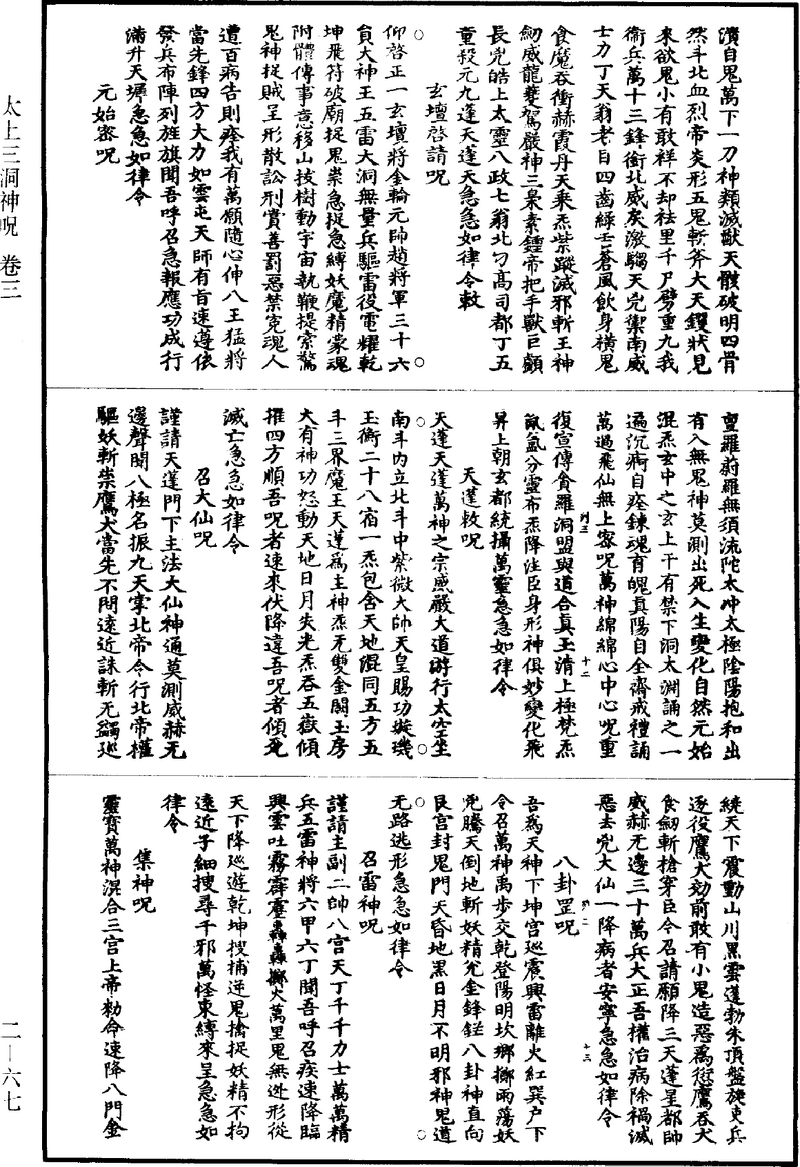 瀆自鬼萬下一刀神類滅獸天骸破明四骨
然斗北血烈帝炎形五鬼斬斧大天钁狀見
來欲鬼小有敢祥不却袪里千尸劈重九我
衛兵萬十三鋒銜北威矣激騶天兇禦南威
士力丁天翁老百四齒綠壬蒼風飲身橫鬼
食魔吞衝赫霞丹天乘炁紫蹤滅邪斬王神
劒威龍夔駕嚴神三梟素鍾帝把手獸巨顱
長兇皓上太靈八政七翁北刁高司都丁五
童殺元九蓬天蓬天急急如律令敕
玄壇啓請呪
仰啓正一玄壇將金輪元帥趙將軍三十六
員大神王五雷大洞無量兵驅雷役電耀乾
坤飛符破廟捉鬼祟急捉急縛妖魔精蒙魂
附體傳事意移山拔樹動宇宙執鞭提索驚
鬼神捉賊呈形散訟刑賞善罰惡禁寃魂人
遭百病告則痊我有萬願隨心伸八王猛將
當先鋒四方大力如雲屯天師有旨速遵依
發兵布陣列旌旗聞吾呼召急報應功成行
滿升天墀急急如律令
元始密呪
亶羅蔚羅無須流陀太冲太極陰陽抱和出
有入無鬼神莫測出死入生變化自然元始
混炁玄中之玄上干有禁下洞太淵誦之一
遍沉痾自痊鍊魂育魄真陽自全齋戒禮誦
萬過飛仙無上密呪萬神綿綿心中心呪重
復宣傳食羅洞盟與道合真玉清上極梵炁
氤氳分靈布炁降注臣身形神俱妙變化飛
昇上朝玄都統攝萬靈急急如律令
天蓬敕呪
天蓬天蓬萬神之宗威嚴大道游行太空坐
南斗内立北斗中紫微大帥天皇賜功璇璣
玉衡二十八宿一炁包含天地混同五方五
斗三界魔王天蓬爲主神炁无雙金闕玉房
大有神功怒動天地日月失光炁吞五嶽傾
摧四方順吾呪者速來伏降違吾呪者傾死
滅亡急急如律令
召大仙呪
謹請天蓬門下主法大仙神通莫測威赫无
邊聲聞八極名振九天掌北帝令行北帝權
驅妖斬祟鷹犬當先不問遠近誅斬无蠲巡
繞天下震動山川黑雲蓬勃朱頂盤旋吏兵
逐役鷹犬効前敢有小鬼造惡爲愆鷹吞犬
食劒斬槍穿臣今召請願降三天蓬星都帥
威赫无邊三十萬兵大正吾權治病除禍滅
惡去兇大仙一降病者安寧急急如律令
八卦罡呪
吾爲天神下坤宮巡震興雷離火紅巽户下
令召萬神禹步交乾登陽明坎鄉擲雨蕩妖
兇騰天倒地斬妖精兌金鋒銍八卦神直向
艮宮封鬼門天昏地黑日月不明邪神鬼道
无路逃形急急如律令
召雷神呪
謹請主副二帥八宮天丁千千力士萬萬精
兵五雷神將六甲六丁聞吾呼召疾速降臨
興雲吐霧霹靂轟轟擲火萬里鬼無逃形從
天下降巡遊乾坤搜捕逆鬼擒捉妖精不拘
遠近子細搜尋千邪萬怪束縛來呈急急如
律令
集神呪
靈寶萬神混合三宮上帝勑命速降八門金
太上三洞神呪 卷三
二—六七